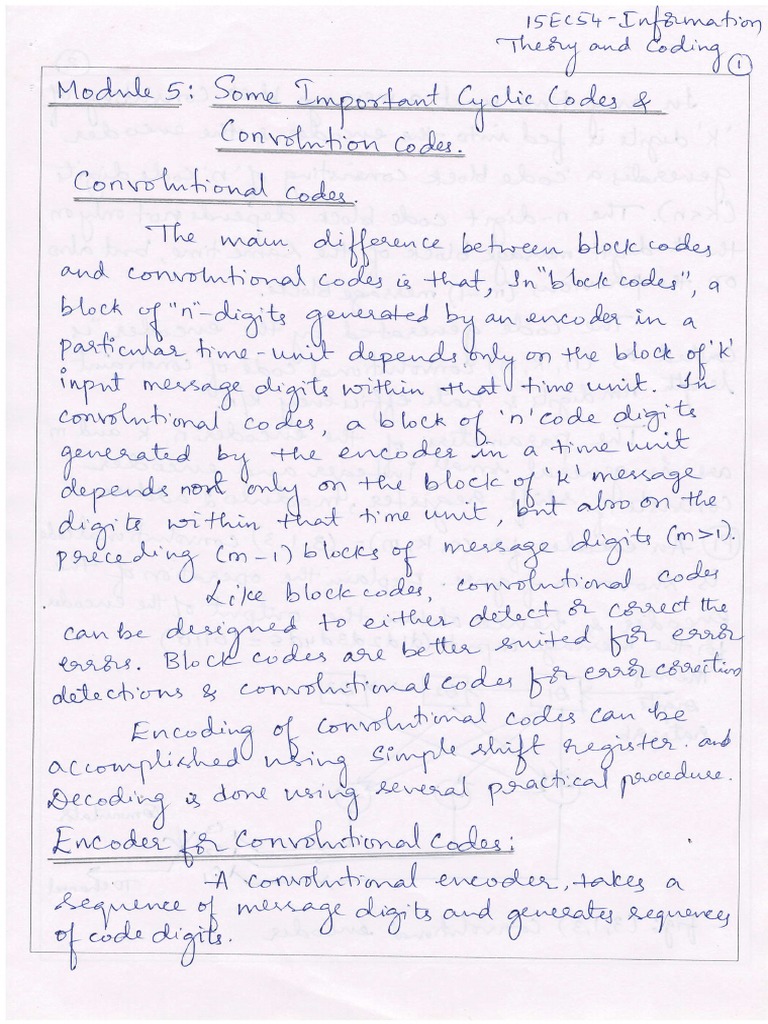 15EC54-Information
Theory and Coding
1
Module 5: Some Important Cyclic Codes &
Convolution Codes.
Convolutional codes.
The main difference between block codes
and convolutional codes is that, In "block codes", a
block of "n"-digits generated by an encoder in a
particular time-unit depends only on the block of 'k'
input message digits within that time unit. In
convolutional codes, a block of 'n' code digits
generated by the encoder in a time unit
depends not only on the block of 'k' message
digits within that time unit, but also on the
preceding (m-1) blocks of message digits (m>1).
Like block codes, convolutional codes
can be designed to either detect or correct the
errors. Block codes are better suited for error
detections & convolutional codes for error correction
Encoding of convolutional codes can be
accomplished using simple shift register. and
Decoding is done using several practical procedure.
Encoder for Convolutional Codes:
A convolutional encoder, takes a
sequence of message digits and generates sequences
of code digits.